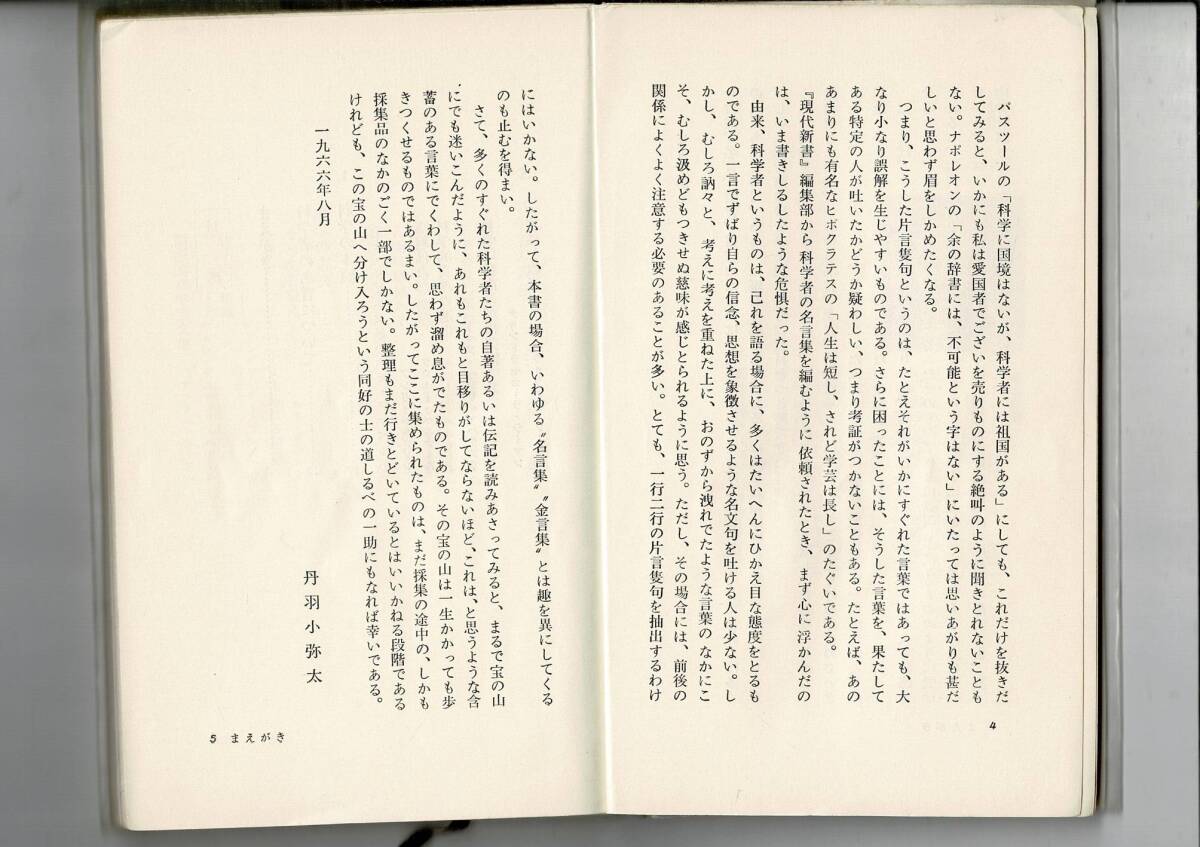 パスツールの「科学に国境はないが、科学者には祖国がある」にしても、これだけを抜きだ
してみると、いかにも私は愛国者でございを売りものにする絶叫のように聞きとれないことも
ない。ナポレオンの「余の辞書には、不可能という字はない」にいたっては思いあがりも甚だ
しいと思わず眉をしかめたくなる。
つまり、こうした片言隻句というのは、たとえそれがいかにすぐれた言葉ではあっても、大
なり小なり誤解を生じやすいものである。さらに困ったことには、そうした言葉を、果たして
ある特定の人が吐いたかどうか疑わしい、つまり考証がつかないこともある。たとえば、あの
あまりにも有名なヒポクラテスの「人生は短し、されど学芸は長し」のたぐいである。
『現代新書』編集部から科学者の名言集を編むように依頼されたとき、まず心に浮かんだの
は、いま書きしるしたような危惧だった。
由来、科学者というものは、己れを語る場合に、多くはたいへんにひかえ目な態度をとるも
のである。一言でずばり自らの信念、思想を象徴させるような名文句を吐ける人は少ない。し
かし、むしろ訥々と、考えに考えを重ねた上に、おのずから洩れでたような言葉のなかにこ
そ、むしろ汲めどもつきせぬ慈味が感じとられるように思う。ただし、その場合には、前後の
関係によくよく注意する必要のあることが多い。とても、一行二行の片言隻句を抽出するわけ
4
にはいかない。したがって、本書の場合、いわゆる〝名言集〟〝金言集〟とは趣を異にしてくる
のも止むを得まい。
さて、多くのすぐれた科学者たちの自著あるいは伝記を読みあさってみると、まるで宝の山
にでも迷いこんだように、あれもこれもと目移りがしてならないほど、これは、と思うような含
蓄のある言葉にでくわして、思わず溜め息がでたものである。その宝の山は一生かかっても歩
きつくせるものではあるまい。したがってここに集められたものは、まだ採集の途中の、しかも
採集品のなかのごく一部でしかない。整理もまだ行きとどいているとはいいかねる段階である
けれども、この宝の山へ分け入ろうという同好の士の道しるべの一助にもなれば幸いである。
一九六六年八月
丹羽小弥太
5 まえがき